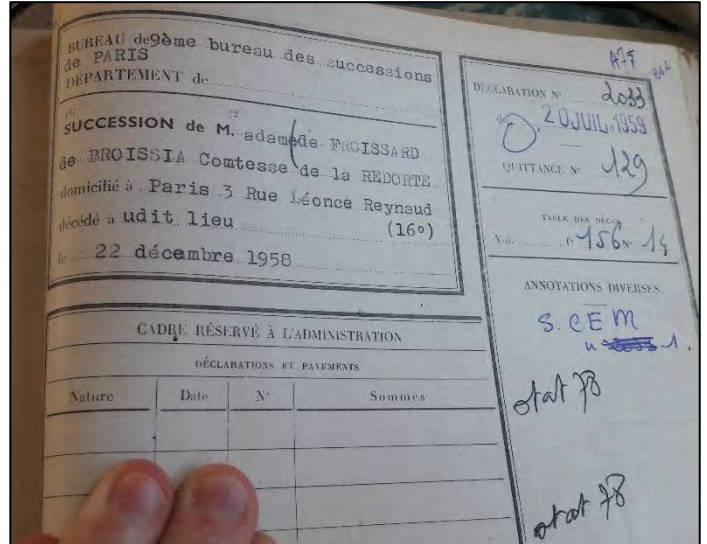 BUREAU de 9ème bureau des successions
de PARIS
DÉPARTEMENT de
(1) (2
SUCCESSION de M. adame de FROISSARD
de BROISSIA Comtesse de la REDORTE
domicilié à Paris 3 Rue Léonce Reynaud
décédé à udit lieu (16°)
le 22 décembre 1958
CADRE RÉSERVÉ À L'ADMINISTRATION
DÉCLARATIONS ET PAYEMENTS
Nature Date N° Sommes
DÉCLARATION N° 2033
du 20 JUIL 1959
QUITTANCE N° 129
TABLE DES DÉCÈS
Vol. f° 156 N° 14
ANNOTATIONS DIVERSES
S. CEM
n° 1.
etat 78
etat 78